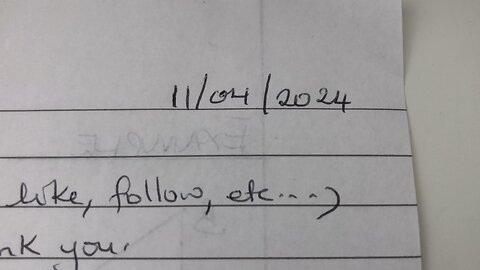 11/04/2024
like, follow, etc....)
you.